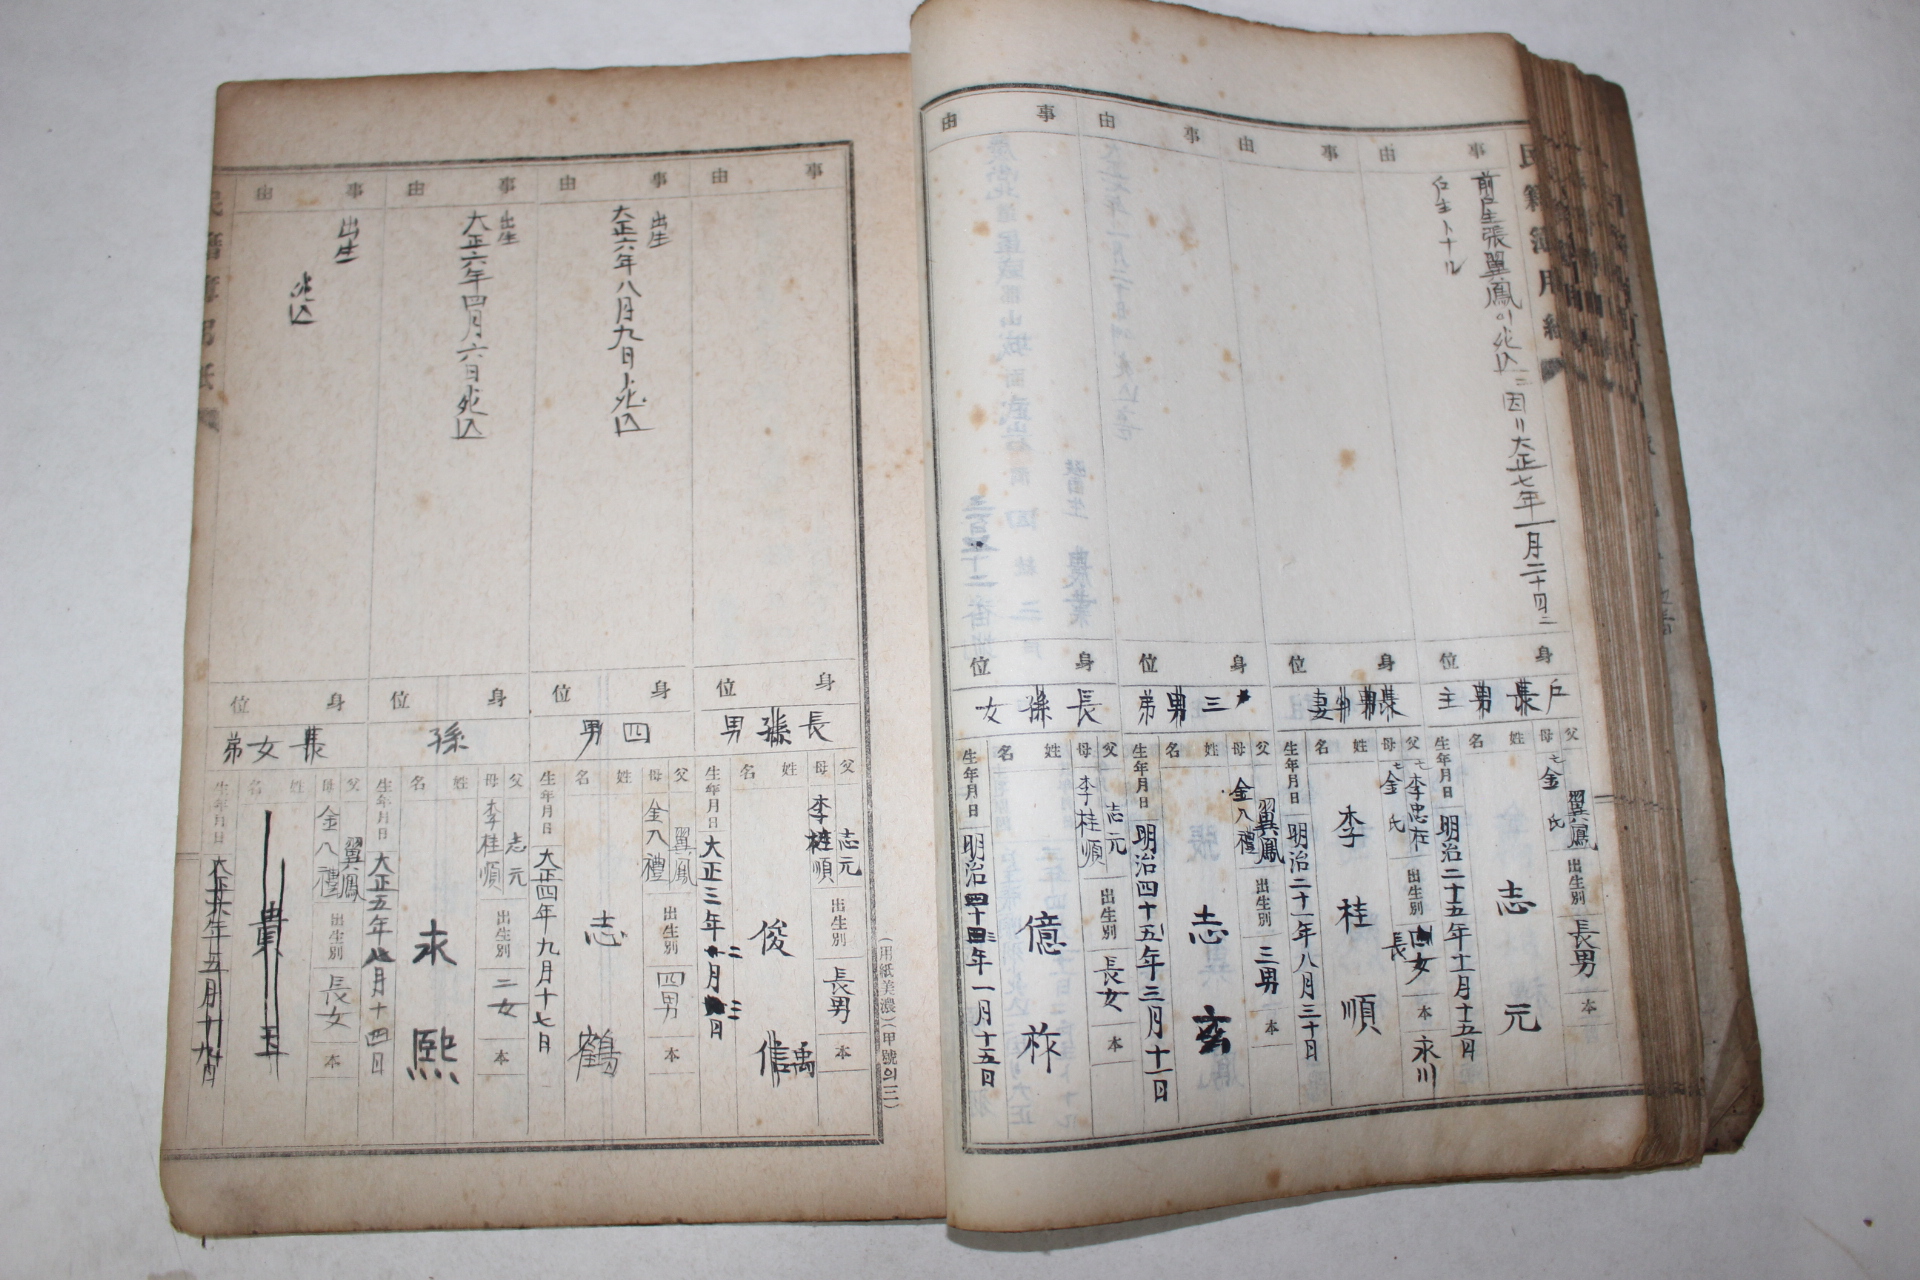 民籍簿用紙
事由
前戶主張翼鳳이死亡ニ因リ大正七年一月二十四ニ
戶主トナル
身位
戶長男主
父
翼鳳
母
金氏
出生別
長男
本
姓名
志元
生年月日
明治二十五年十一月十五日
事由
身位
妻
父
李忠在
母
金氏
出生別
長女
本
永川
姓名
李桂順
生年月日
明治二十一年八月三十日
事由
身位
三男弟
父
翼鳳
母
金八禮
出生別
三男
本
姓名
志玄
生年月日
明治四十五年三月十一日
事由
身位
長孫女
父
志元
母
李桂順
出生別
長女
本
姓名
億祚
生年月日
明治四十四年一月十五日
(用紙美濃)(甲號의三)
事由
身位
長孫男
父
志元
母
李桂順
出生別
長男
本
姓名
俊信
禹
生年月日
大正三年二月三日
事由
出生
大正六年八月九日死亡
身位
四男
父
翼鳳
母
金八禮
出生別
四男
本
姓名
志鶴
生年月日
大正四年九月十七日
事由
出生
大正六年四月六日死亡
身位
孫
父
志元
母
李桂順
出生別
二女
本
姓名
永熙
生年月日
大正五年八月十四日
事由
出生
死亡
身位
長女弟
父
翼鳳
母
金八禮
出生別
長女
本
姓名
貴玉
生年月日
大正六年五月十九日